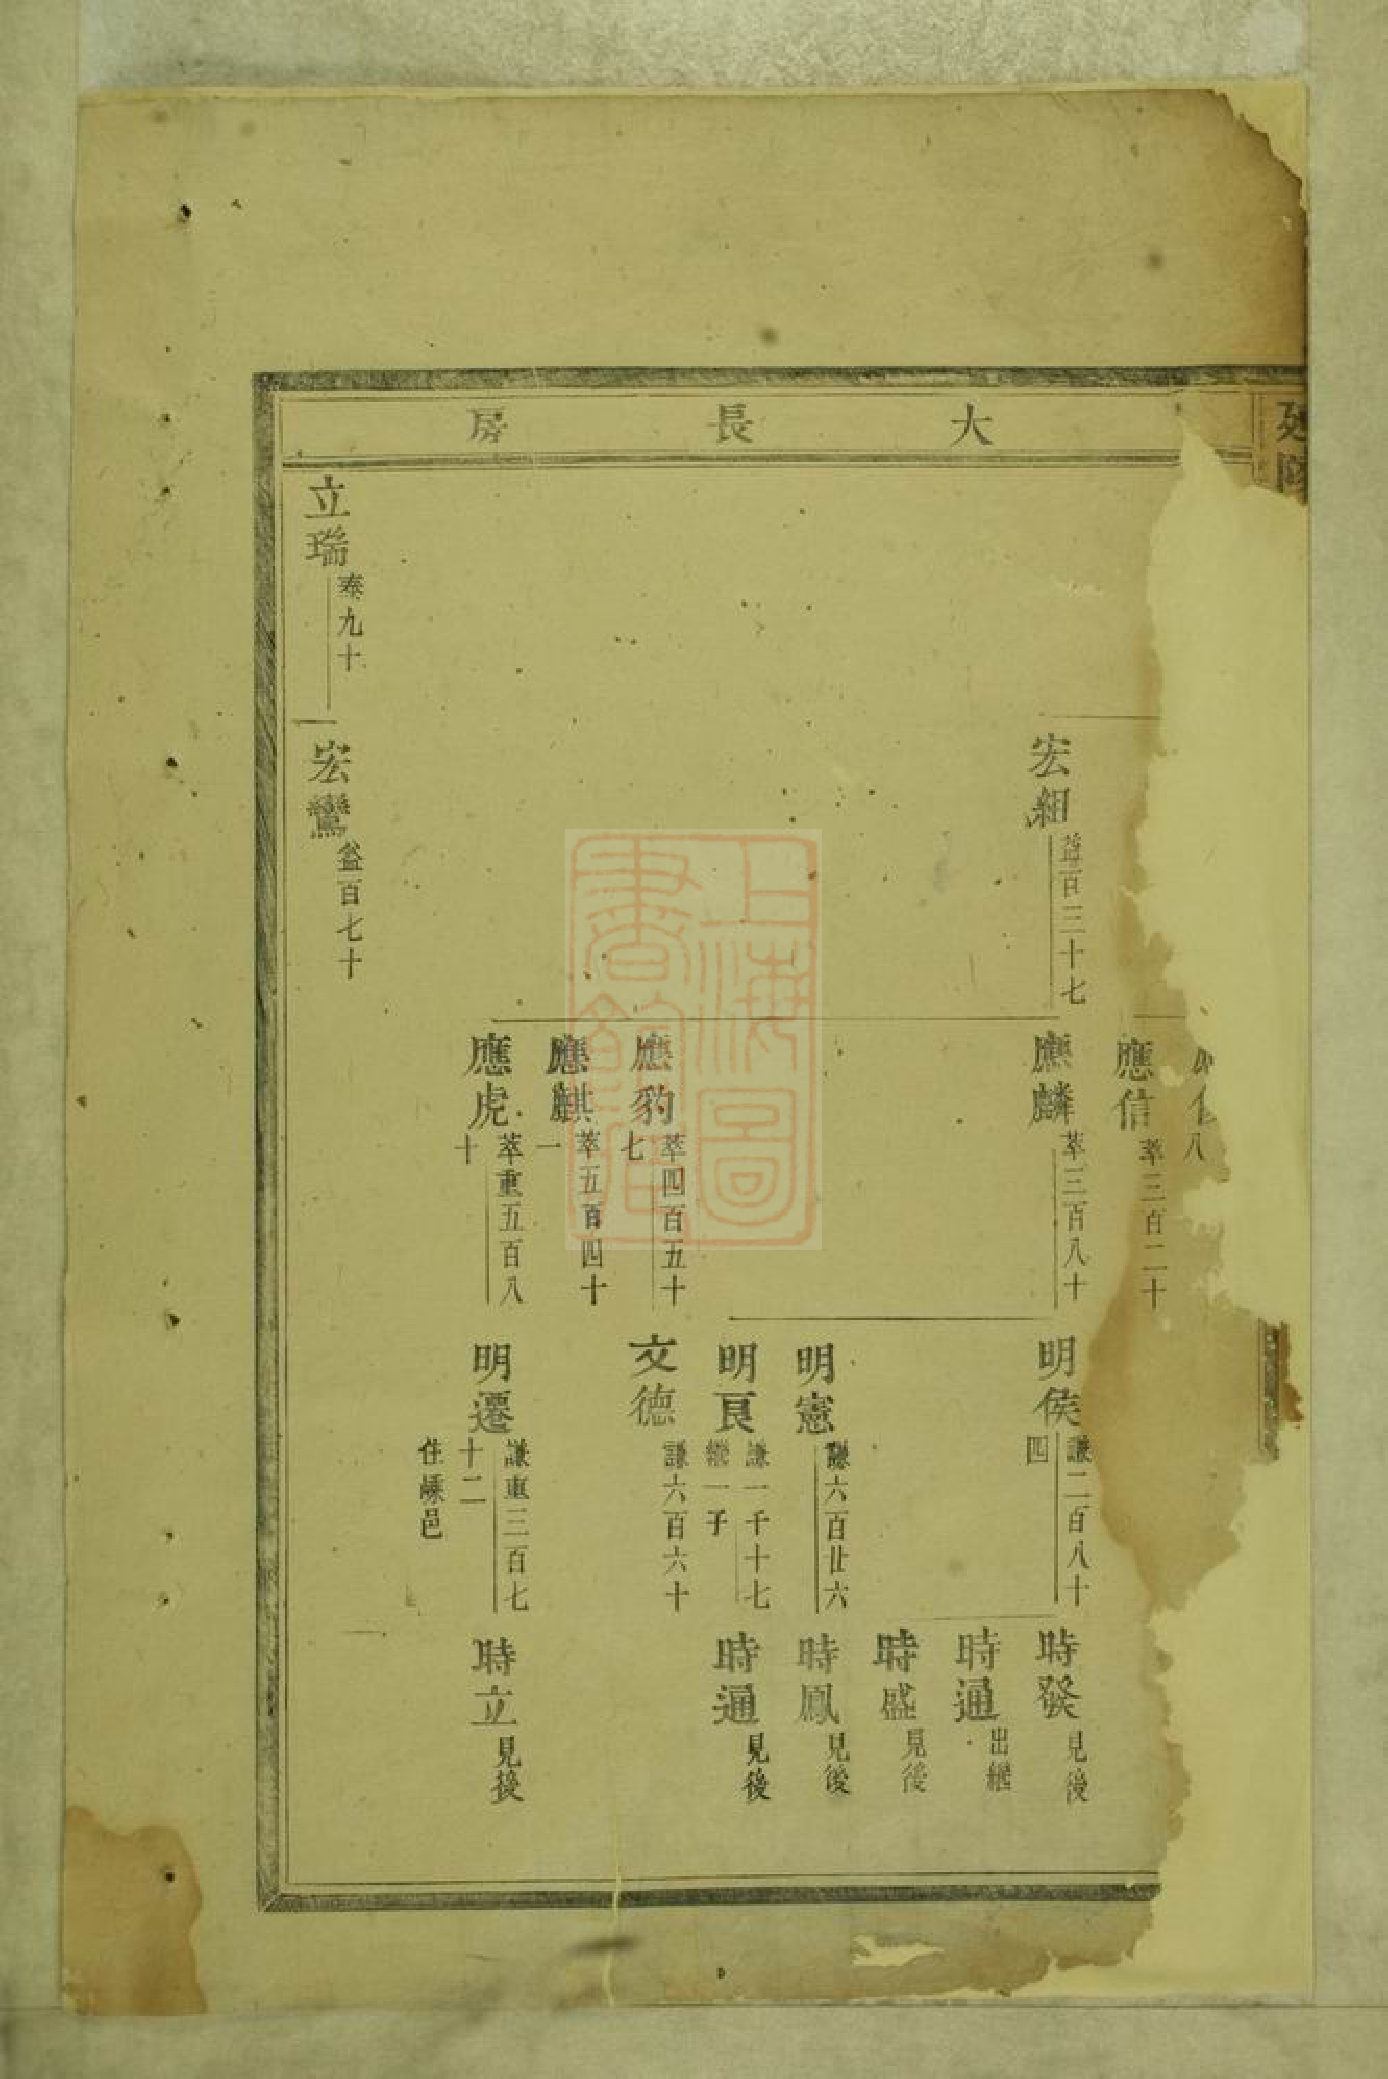 大長房
應信 萃三百二十
宏組 益百三十七
應麟 萃三百八十
明侯 謙二百八十
四
時發 見後
時通 出繼
時盛 見後
明憲 謙六百廿六
時鳳 見後
明良 謙一千十七
繼一子
時通 見後
應豹 萃四百五十
七
文德 謙六百六十
應麒 萃五百四十
一
應虎 萃重五百八
十
明遷 謙重三百七
十二
住嵊邑
時立 見後
立瑞 泰九十
宏鸞 益百七十
上海圖書館藏